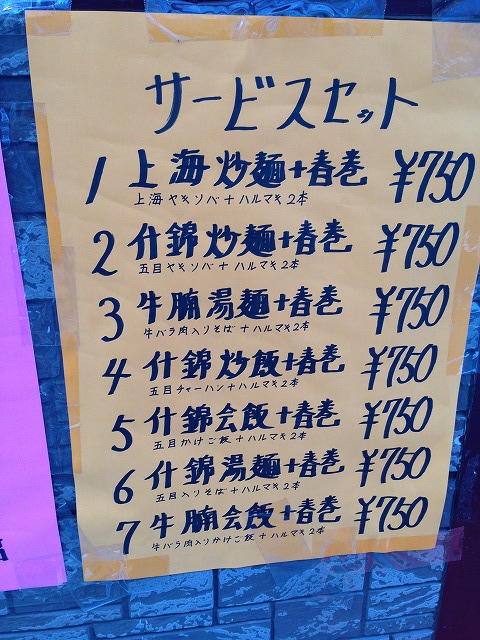 サービスセット
1 上海炒麺+春巻 ¥750
上海ヤキソバ+ハルマキ2本
2 什錦炒麺+春巻 ¥750
五目ヤキソバ+ハルマキ2本
3 牛腩湯麺+春巻 ¥750
牛バラ肉入りそば+ハルマキ2本
4 什錦炒飯+春巻 ¥750
五目チャーハン+ハルマキ2本
5 什錦会飯+春巻 ¥750
五目かけご飯+ハルマキ2本
6 什錦湯麺+春巻 ¥750
五目入りそば+ハルマキ2本
7 牛腩会飯+春巻 ¥750
牛バラ肉入りかけご飯+ハルマキ2本